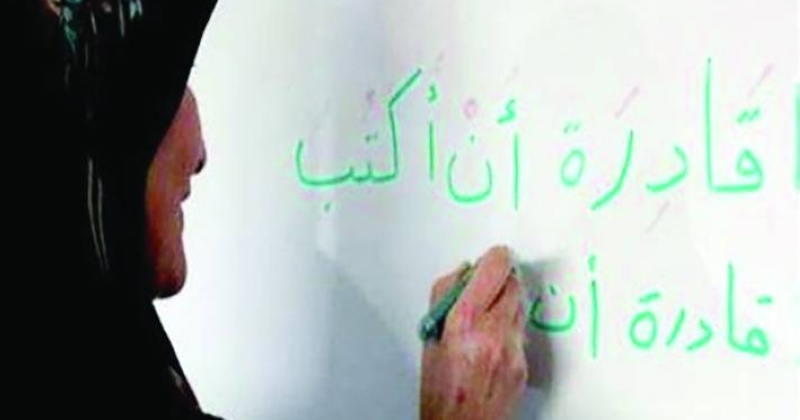 قَادِرَة أَنْ أَكتُب
قادرة أن